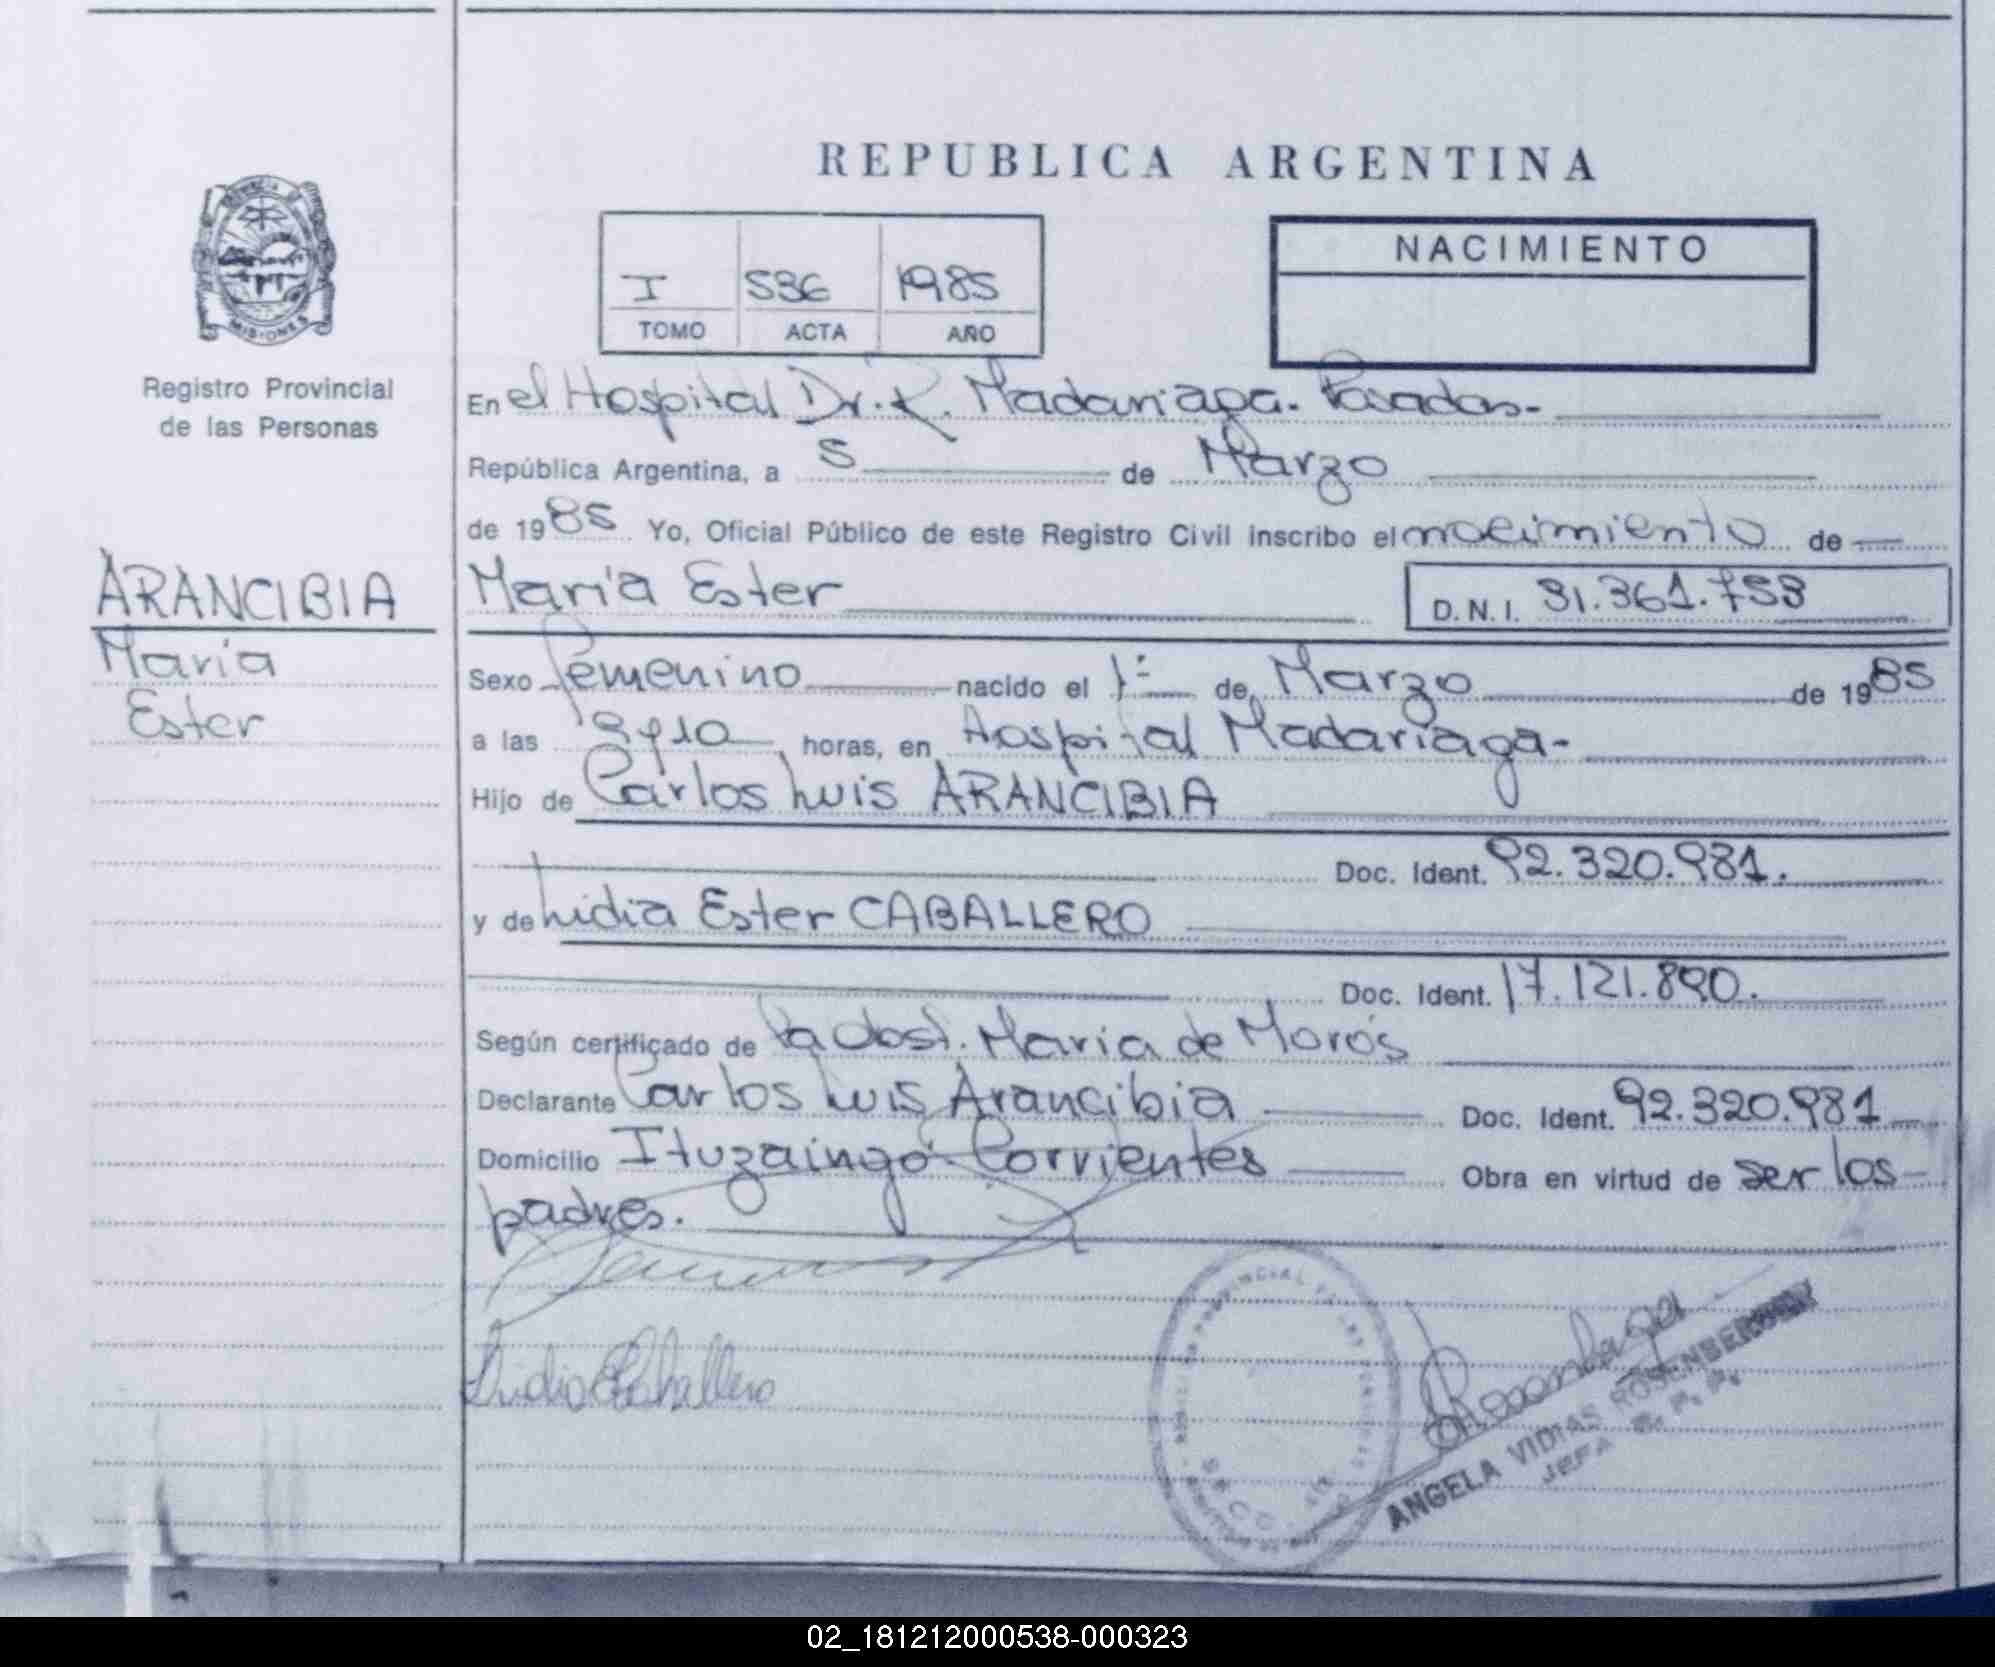 REPUBLICA ARGENTINA
PROVINCIA DE
MISIONES
Registro Provincial
de las Personas
I 536 1985
TOMO ACTA AÑO
NACIMIENTO
En el Hospital Dr. R. Madariaga. Posadas-
República Argentina, a 5 de Marzo
de 1985 Yo, Oficial Público de este Registro Civil inscribo el nacimiento de
ARANCIBIA
María
Ester
María Ester D.N.I. 31.361.753
Sexo Femenino nacido el 1º de Marzo de 1985
a las horas, en Hospital Madariaga-
Hijo de Carlos Luis ARANCIBIA
Doc. Ident. 92.320.981.
y de Lidia Ester CABALLERO
Doc. Ident. 17.121.890.
Según certificado de la Obst. María de Morós
Declarante Carlos Luis Arancibia Doc. Ident. 92.320.981
Domicilio Ituzaingó. Corrientes Obra en virtud de ser los
padres.
Lidia E Caballero
ANGELA VIDIAS ROSENBERGER
JEFA R. P. P.
02_181212000538-000323